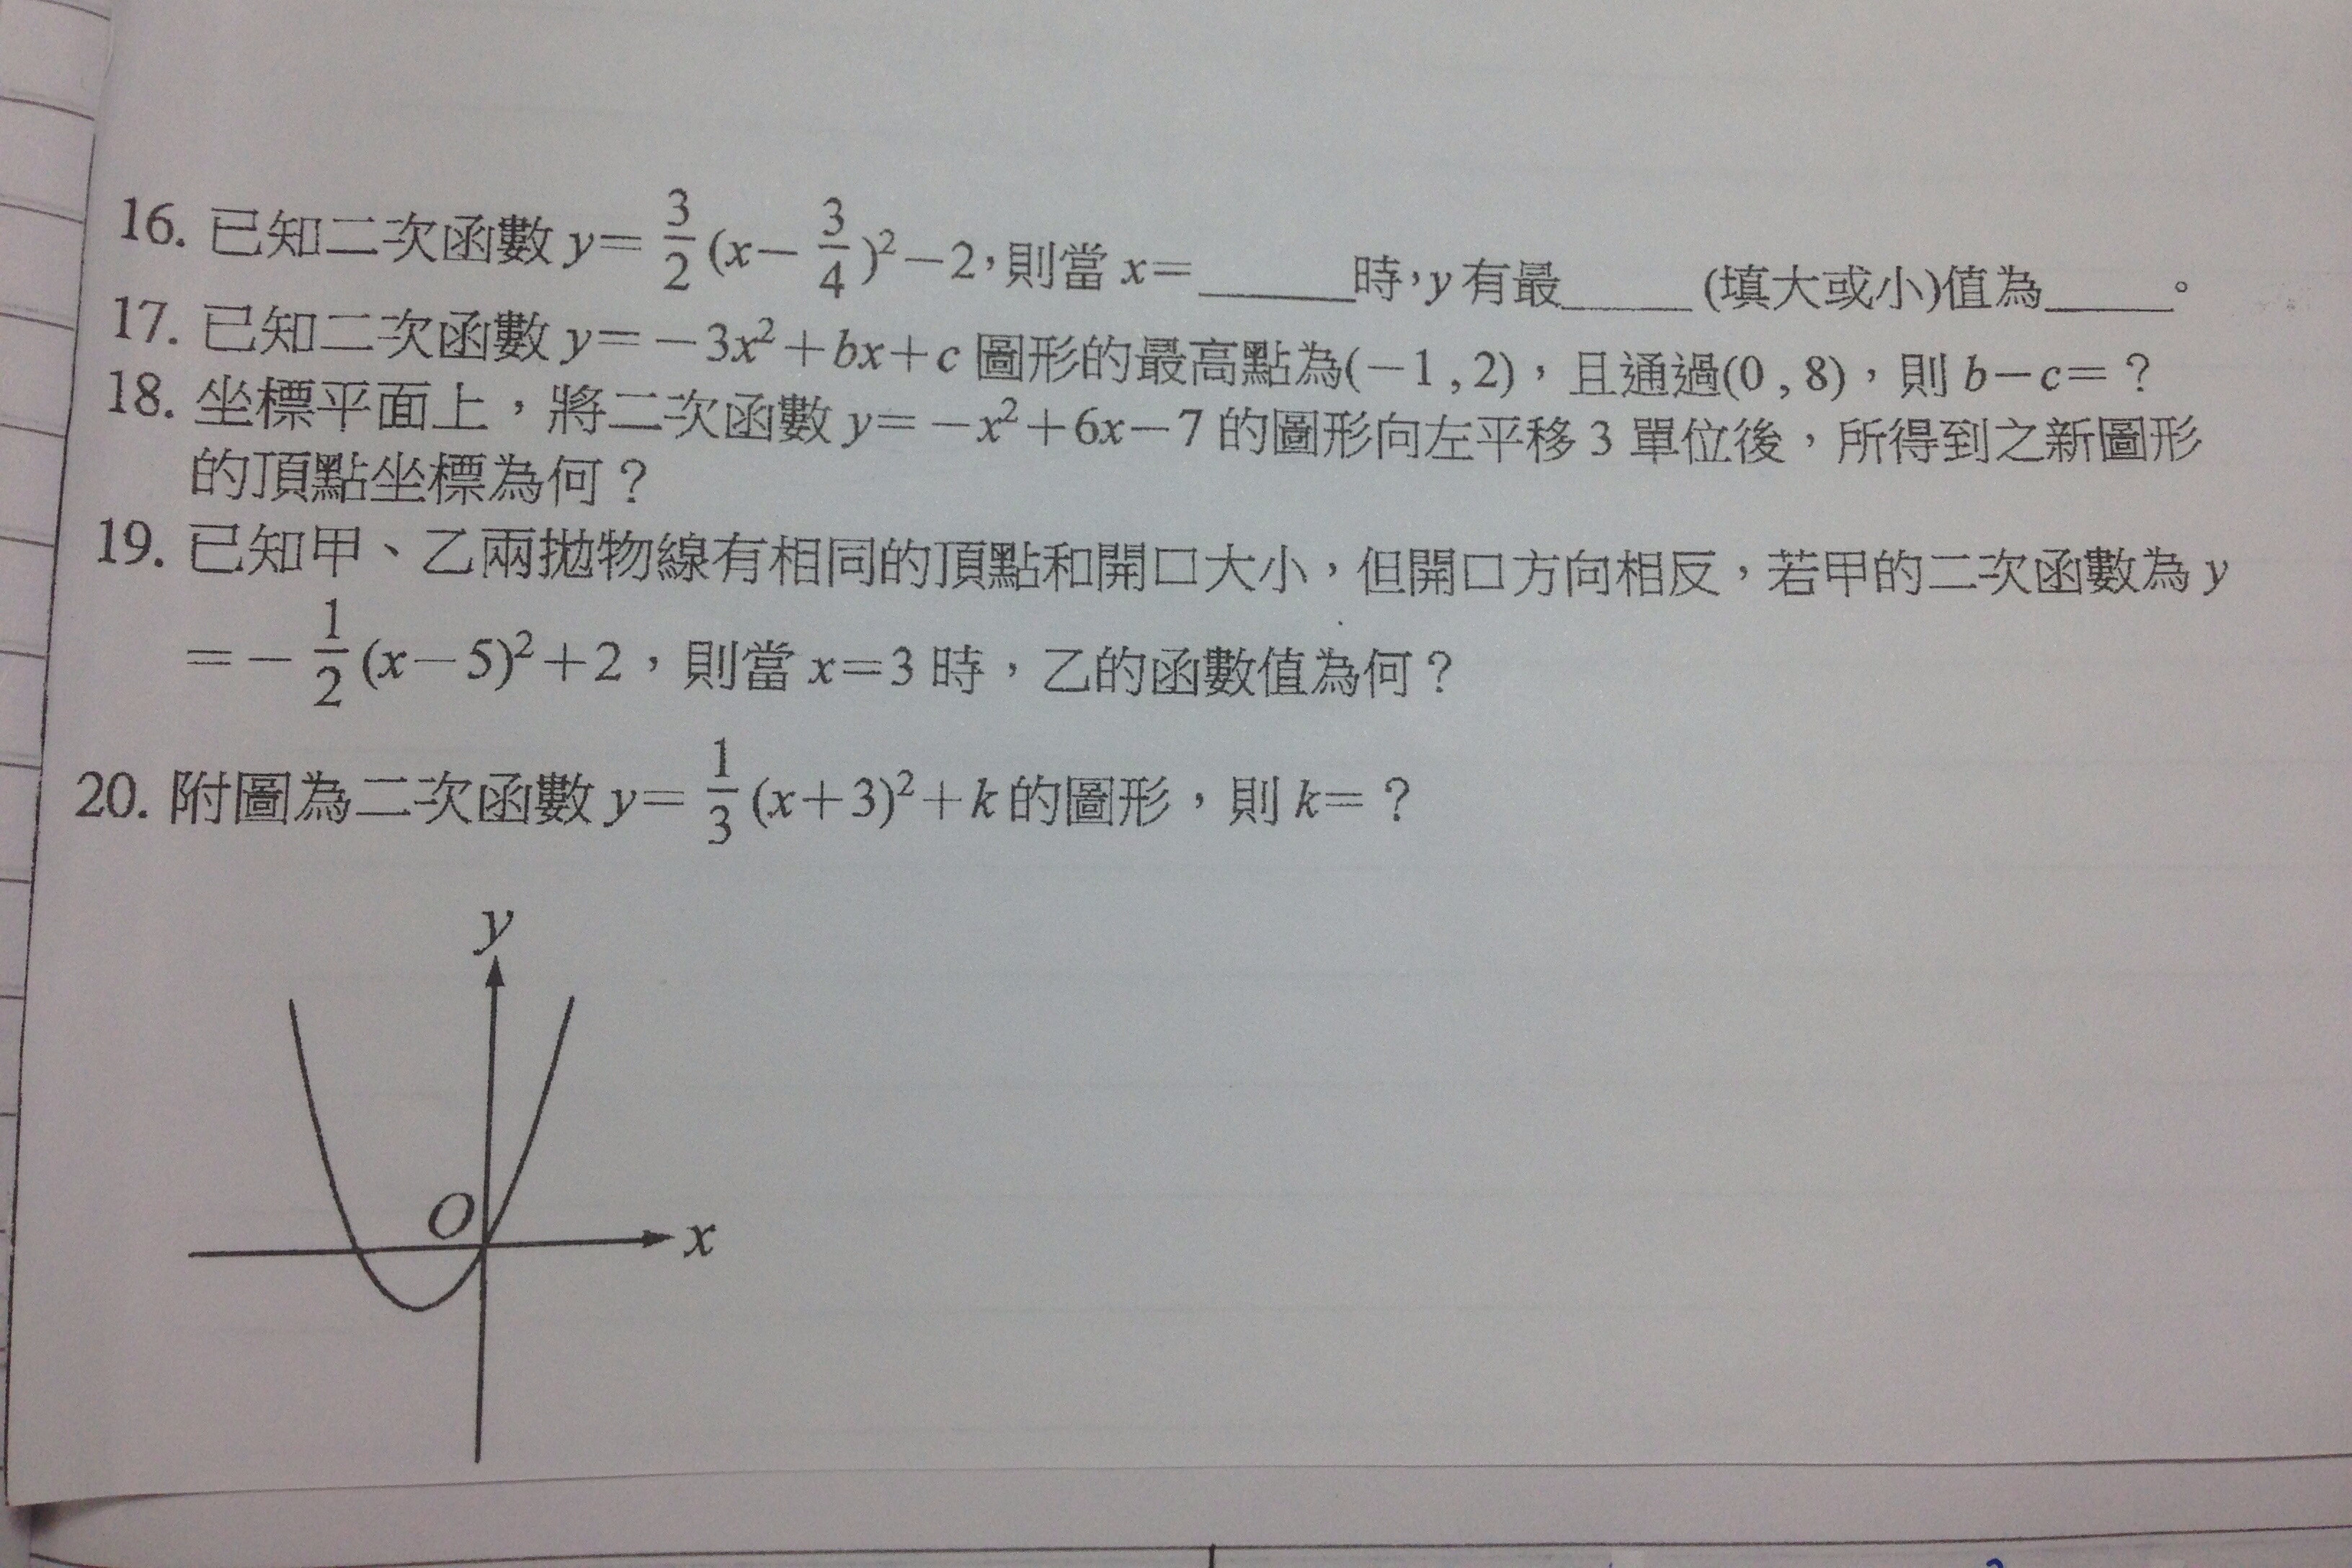 16. 已知二次函數 y= 3/2 (x− 3/4 )²−2,則當 x=______時,y 有最_____ (填大或小)值為_____。
17. 已知二次函數 y=−3x²+bx+c 圖形的最高點為(−1 , 2),且通過(0 , 8),則 b−c=?
18. 坐標平面上,將二次函數 y=−x²+6x−7 的圖形向左平移 3 單位後,所得到之新圖形
的頂點坐標為何?
19. 已知甲、乙兩拋物線有相同的頂點和開口大小,但開口方向相反,若甲的二次函數為 y
=− 1/2 (x−5)²+2,則當 x=3 時,乙的函數值為何?
20. 附圖為二次函數 y= 1/3 (x+3)²+k 的圖形,則 k=?
y
O
x